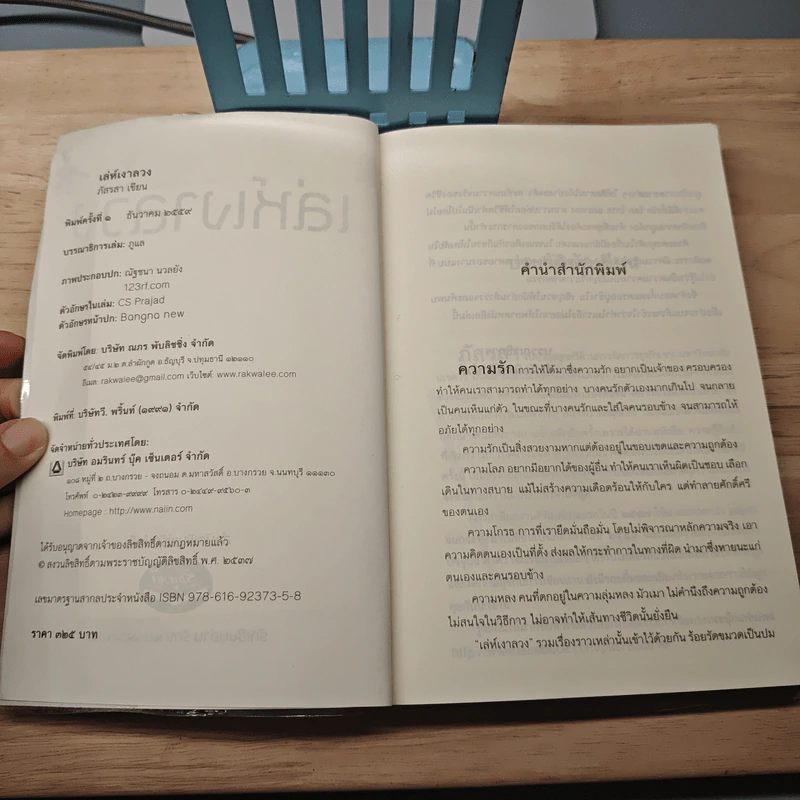 เล่ห์เงาลวง
ภัสรสา เขียน
พิมพ์ครั้งที่ ๑ ธันวาคม ๒๕๕๙
บรรณาธิการเล่ม: ภูแล
ภาพประกอบปก: ณัฐชนา นวลยัง
123rf.com
ตัวอักษรในเล่ม: CS Prajad
ตัวอักษรหน้าปก: Bangna new
จัดพิมพ์โดย: บริษัท ณภร พับลิชชิ่ง จำกัด
๕๔/๔๕ ม.๒ ต.ลำผักกูด อ.ธัญบุรี จ.ปทุมธานี ๑๒๑๑๐
อีเมล: rakwalee@gmail.com เว็บไซต์: www.rakwalee.com
พิมพ์ที่: บริษัทวี. พริ้นท์ (๑๙๙๑) จำกัด
จัดจำหน่ายทั่วประเทศโดย:
บริษัท อมรินทร์ บุ๊ค เซ็นเตอร์ จำกัด
๑๐๘ หมู่ที่ ๒ ถ.บางกรวย - จงถนอม ต.มหาสวัสดิ์ อ.บางกรวย จ.นนทบุรี ๑๑๑๓๐
โทรศัพท์ ๐-๒๔๒๓-๙๙๙๙ โทรสาร ๐-๒๔๔๙-๙๕๖๐-๓
Homepage : http://www.naiin.com
ได้รับอนุญาตจากเจ้าของลิขสิทธิ์ตามกฎหมายแล้ว
© สงวนลิขสิทธิ์ตามพระราชบัญญัติลิขสิทธิ์ พ.ศ. ๒๕๓๗
เลขมาตรฐานสากลประจำหนังสือ ISBN 978-616-92373-5-8
ราคา ๓๒๕ บาท
คำนำสำนักพิมพ์
ความรัก การให้ได้มาซึ่งความรัก อยากเป็นเจ้าของ ครอบครอง
ทำให้คนเราสามารถทำได้ทุกอย่าง บางคนรักตัวเองมากเกินไป จนกลาย
เป็นคนเห็นแก่ตัว ในขณะที่บางคนรักและใส่ใจคนรอบข้าง จนสามารถให้
อภัยได้ทุกอย่าง
ความรักเป็นสิ่งสวยงามหากแต่ต้องอยู่ในขอบเขตและความถูกต้อง
ความโลภ อยากมีอยากได้ของผู้อื่น ทำให้คนเราเห็นผิดเป็นชอบ เลือก
เดินในทางสบาย แม้ไม่สร้างความเดือดร้อนให้กับใคร แต่ทำลายศักดิ์ศรี
ของตนเอง
ความโกรธ การที่เรายึดมั่นถือมั่น โดยไม่พิจารณาหลักความจริง เอา
ความคิดตนเองเป็นที่ตั้ง ส่งผลให้กระทำการในทางที่ผิด นำมาซึ่งหายนะแก่
ตนเองและคนรอบข้าง
ความหลง คนที่ตกอยู่ในความลุ่มหลง มัวเมา ไม่คำนึงถึงความถูกต้อง
ไม่สนใจในวิธีการ ไม่อาจทำให้เส้นทางชีวิตนั้นยั่งยืน
"เล่ห์เงาลวง" รวมเรื่องราวเหล่านั้นเข้าไว้ด้วยกัน ร้อยรัดขมวดเป็นปม